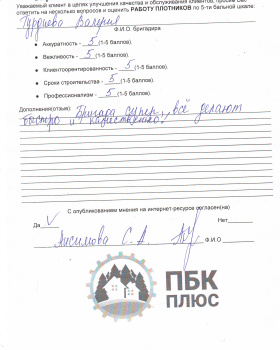 Уважаемый клиент в целях улучшения качества и обслуживания клиентов, просим Вас
ответить на несколько вопросов и оценить РАБОТУ ПЛОТНИКОВ по 5-ти бальной шкале:
Валерия
Ф.И.О. бригадира
• Аккуратность - 5 (1-5 баллов).
• Вежливость - 5 (1-5 баллов).
• Клиентоориентированность - 5 (1-5 баллов).
• Сроки строительства - 5 (1-5 баллов)
• Профессионализм - 5 (1-5 баллов)
Дополнения(отзыв): Бригада супер, всё делают
быстро и качественно!
С опубликованием мнения на интернет-ресурсе согласен(на)
Да V Нет
Анисимова С. А. Ф.И.О
ПБК
ПЛЮС